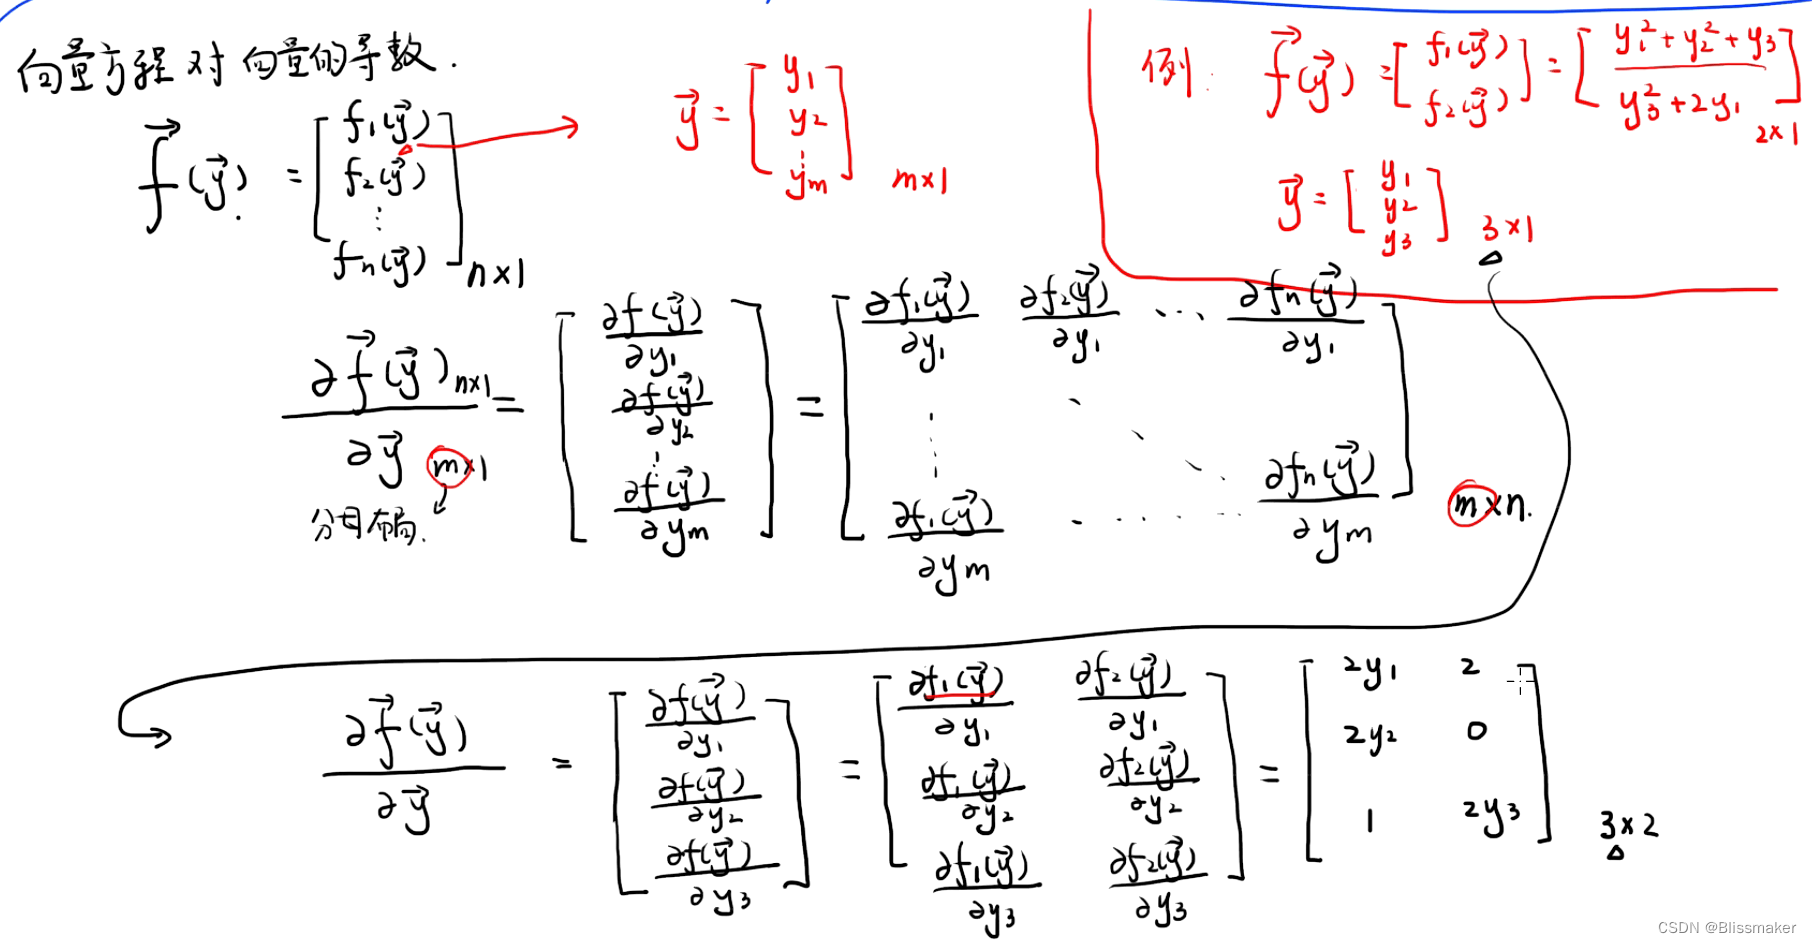 向量方程对向量的导数.
f⃗(y⃗) = [ f₁(y⃗) f₂(y⃗) ⋮ fₙ(y⃗) ] n×1
y⃗ = [ y₁ y₂ ⋮ yₘ ] m×1
例: f⃗(y⃗) = [ f₁(y⃗) f₂(y⃗) ] = [ y₁²+y₂²+y₃ y₃²+2y₁ ] 2×1
y⃗ = [ y₁ y₂ y₃ ] 3×1
∂f⃗(y⃗)n×1 / ∂y⃗ m×1 = [ ∂f(y⃗)/∂y₁ ∂f(y⃗)/∂y₂ ⋮ ∂f(y⃗)/∂yₘ ] = [ ∂f₁(y⃗)/∂y₁ ∂f₂(y⃗)/∂y₁ ⋯ ∂fₙ(y⃗)/∂y₁ ⋮ ⋱ ∂f₁(y⃗)/∂yₘ ⋯ ∂fₙ(y⃗)/∂yₘ ] m×n.
分母布局.
∂f⃗(y⃗)/∂y⃗ = [ ∂f(y⃗)/∂y₁ ∂f(y⃗)/∂y₂ ∂f(y⃗)/∂y₃ ] = [ ∂f₁(y⃗)/∂y₁ ∂f₂(y⃗)/∂y₁ ∂f₁(y⃗)/∂y₂ ∂f₂(y⃗)/∂y₂ ∂f₁(y⃗)/∂y₃ ∂f₂(y⃗)/∂y₃ ] = [ 2y₁ 2 2y₂ 0 1 2y₃ ] 3×2
CSDN @Blissmaker